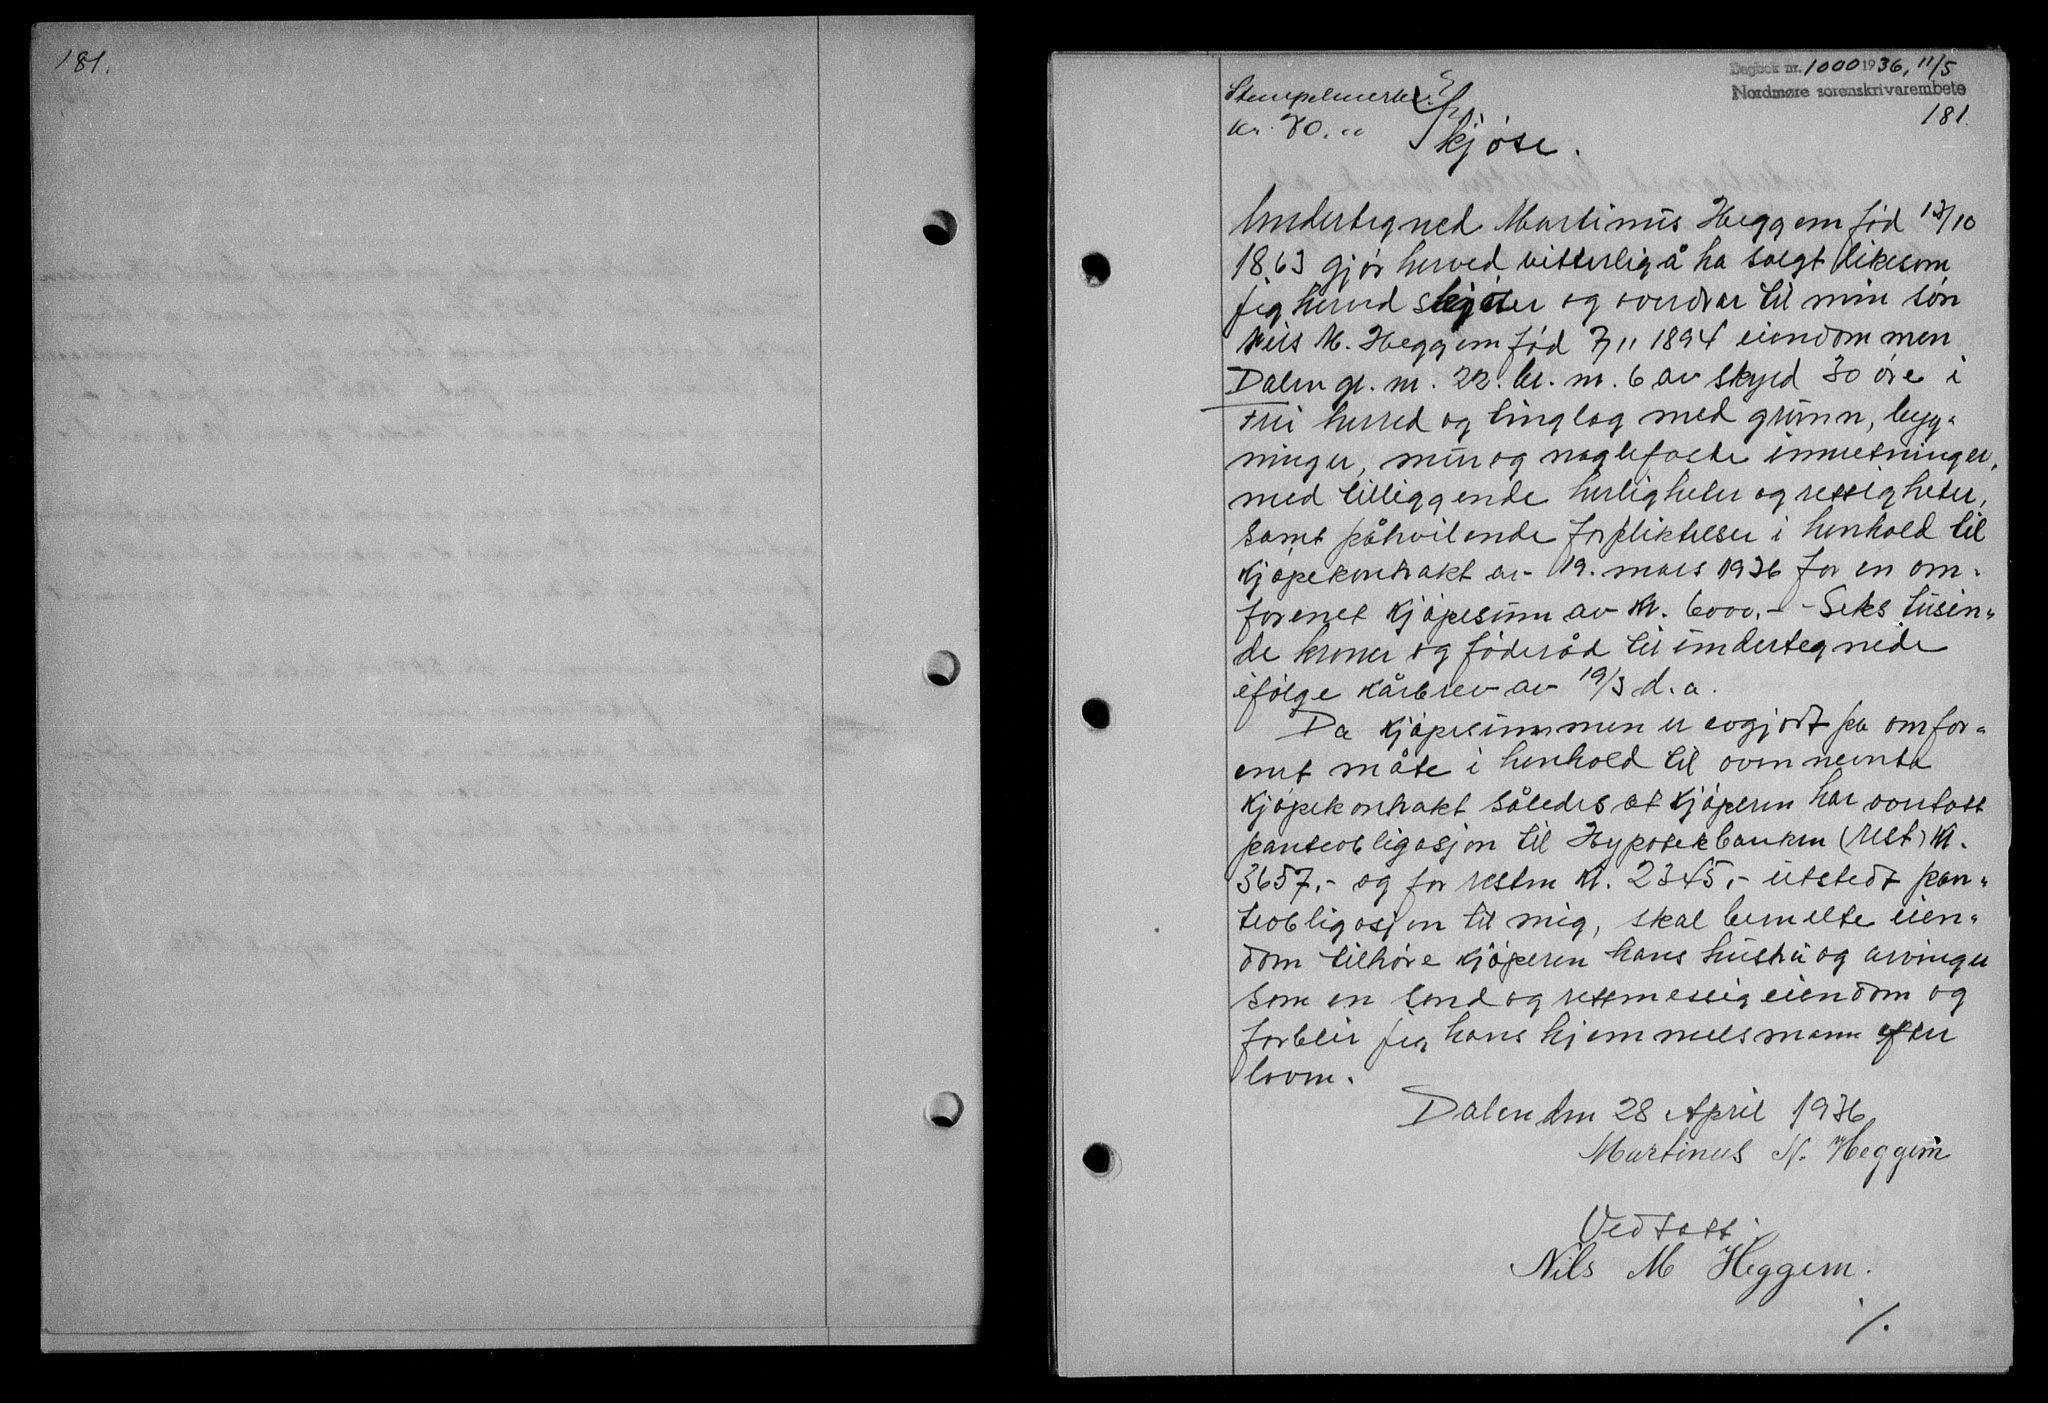 181.
Dagbok nr. 1000 1936, 11/5
Nordmøre sorenskrivarembete
181.
Stempelmerke
kr. 70.
Skjøte.
Undertegned Martinus Heggem fød 13/10
1863 gjør herved vitterlig å ha solgt likesom
jeg herved skjøter og overdrar til min søn
Nils M. Heggem fød 7/11 1894 eiendommen
Dalen gr. nr. 22. br. nr. 6 av skyld 30 øre i
Frei herred og tinglag med grunn, byg-
ninger, mur og naglefaste innretninger,
med tilliggende herligheter og rettigheter,
samt påhvilende forpliktelser i henhold til
kjøpekontrakt av 19. mars 1936 for en om-
forenet kjøpesum av kr. 6000.- - Seks tusin-
de kroner og føderåd til undertegnede
ifølge kårbrev av 19/3 d.a.
Da kjøpesummen er avgjort på omfor-
ent måte i henhold til ovennevnte
kjøpekontrakt således at kjøperen har overtatt
panteobligasjon til Hypotekbanken (rest) kr.
3657,- og for resten kr. 2345,- utstedt pan-
teobligasjon til mig, skal bemelte eien-
dom tilhøre kjøperen hans hustru og arvinger
som en lovlig og rettmessig eiendom og
forblir jeg hans hjemmelsmann efter
loven.
Dalen den 28 April 1936
Martinus N. Heggem
Vedtatt:
Nils M Heggem.
./.